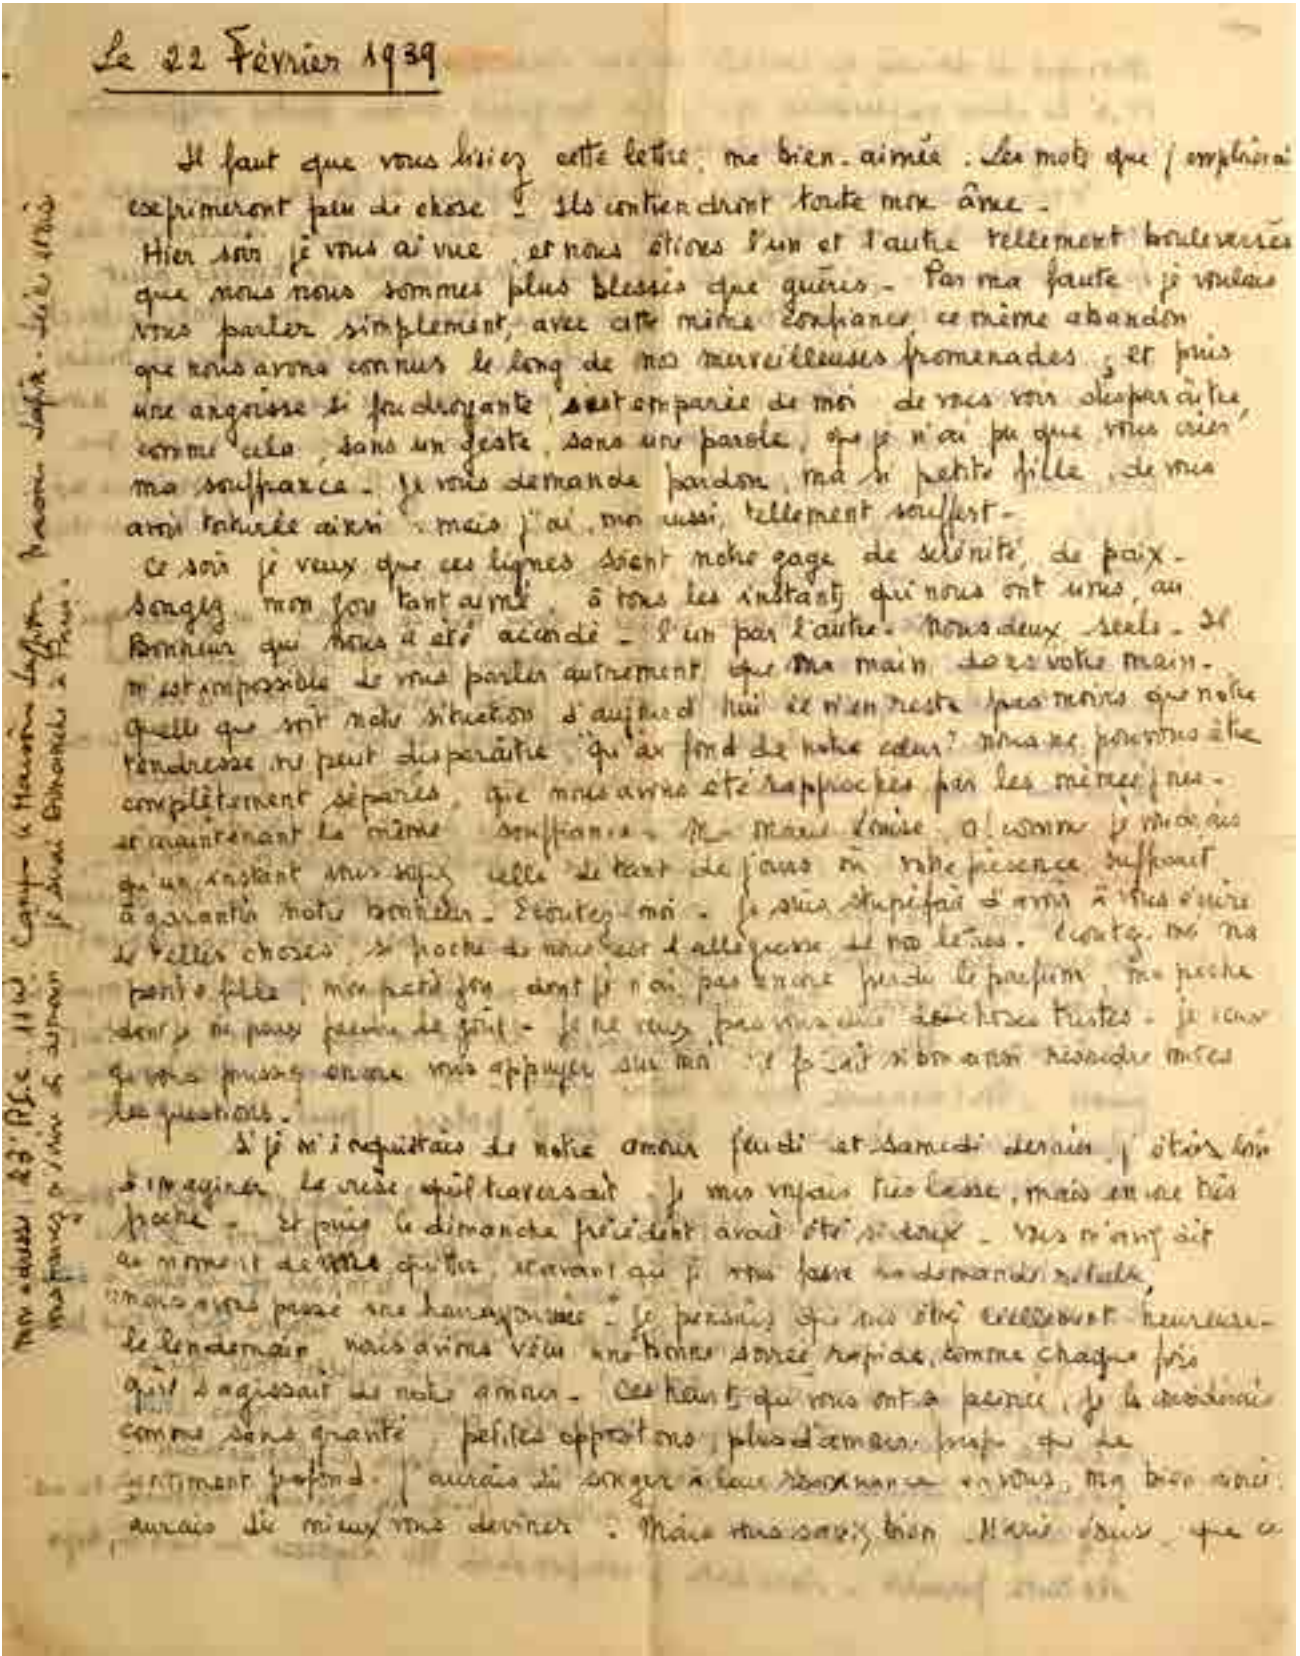 Le 22 Février 1939
Il faut que vous lisiez cette lettre, ma bien-aimée. Les mots que j'emploierai
exprimeront peu de chose - Ils contiendront toute mon âme -
Hier soir je vous ai vue, et nous étions l'un et l'autre tellement bouleversés
que nous nous sommes plus blessés que guéris - Par ma faute : je voulais
vous parler simplement, avec cette même confiance, ce même abandon
que nous avons connus le long de nos merveilleuses promenades ; et puis
une angoisse si foudroyante s'est emparée de moi de vous voir disparaître,
comme cela, sans un geste, sans une parole, que je n'ai pu que vous crier
ma souffrance - Je vous demande pardon, ma si petite fille, de vous
avoir torturée ainsi : mais j'ai, moi aussi, tellement souffert -
Ce soir je veux que ces lignes soient notre gage de sérénité, de paix -
Songez, mon tant aimé, à tous les instants qui nous ont unis, au
Bonheur qui nous a été accordé - l'un par l'autre - Nous deux seuls - Il
m'est impossible de vous parler autrement que ma main dans votre main -
Quelle que soit notre situation d'aujourd'hui il n'en reste pas moins que notre
tendresse ne peut disparaître qu'au fond de notre cœur nous ne pouvons être
complètement séparés, que nous avons été rapprochés par les mêmes joies -
et maintenant la même souffrance - Marie Louise, comme je voudrais
qu'un instant vous soyez celle de tant de jours où votre présence suffisait
à garantir notre bonheur - Ecoutez-moi - Je suis stupéfait d'avoir à vous écrire
de telles choses, si proche de nous est l'allégresse de nos lettres - Ecoutez-moi ma
petite fille, mon dont je n'ai pas encore perdu le parfum, ma
dont je ne peux le goût - Je ne veux pas vous de choses tristes - je veux
que vous puissiez encore vous appuyer sur moi : il faisait si bon ainsi résoudre
les questions -
Si je m'inquiétais de notre amour jeudi et samedi dernier, j'étais loin
d'imaginer la crise qu'il traversait - Je vous voyais très lasse, mais encore très
proche - Et puis le dimanche précédent avait été si doux - Vous m'aviez dit
au moment de me quitter, et avant que je vous fasse ma demande
"nous avons passé une" - Je pensais que vous étiez réellement heureuse -
le lendemain nous avions vécu une bonne soirée rapide, comme chaque fois
qu'il s'agissait de notre amour - Ces heurts qui vous ont peinée, je les considérais
comme sans gravité, petites oppositions, plus d'amour-propre que de
sentiment profond - J'aurais dû songer à leur résonnance en vous, ma bien aimée,
aurais dû mieux vous deviner : Mais vous savez bien, Marie Louise, que ce
mon adresse 23e R.I.C. 11e
je serai Dimanche à Paris.